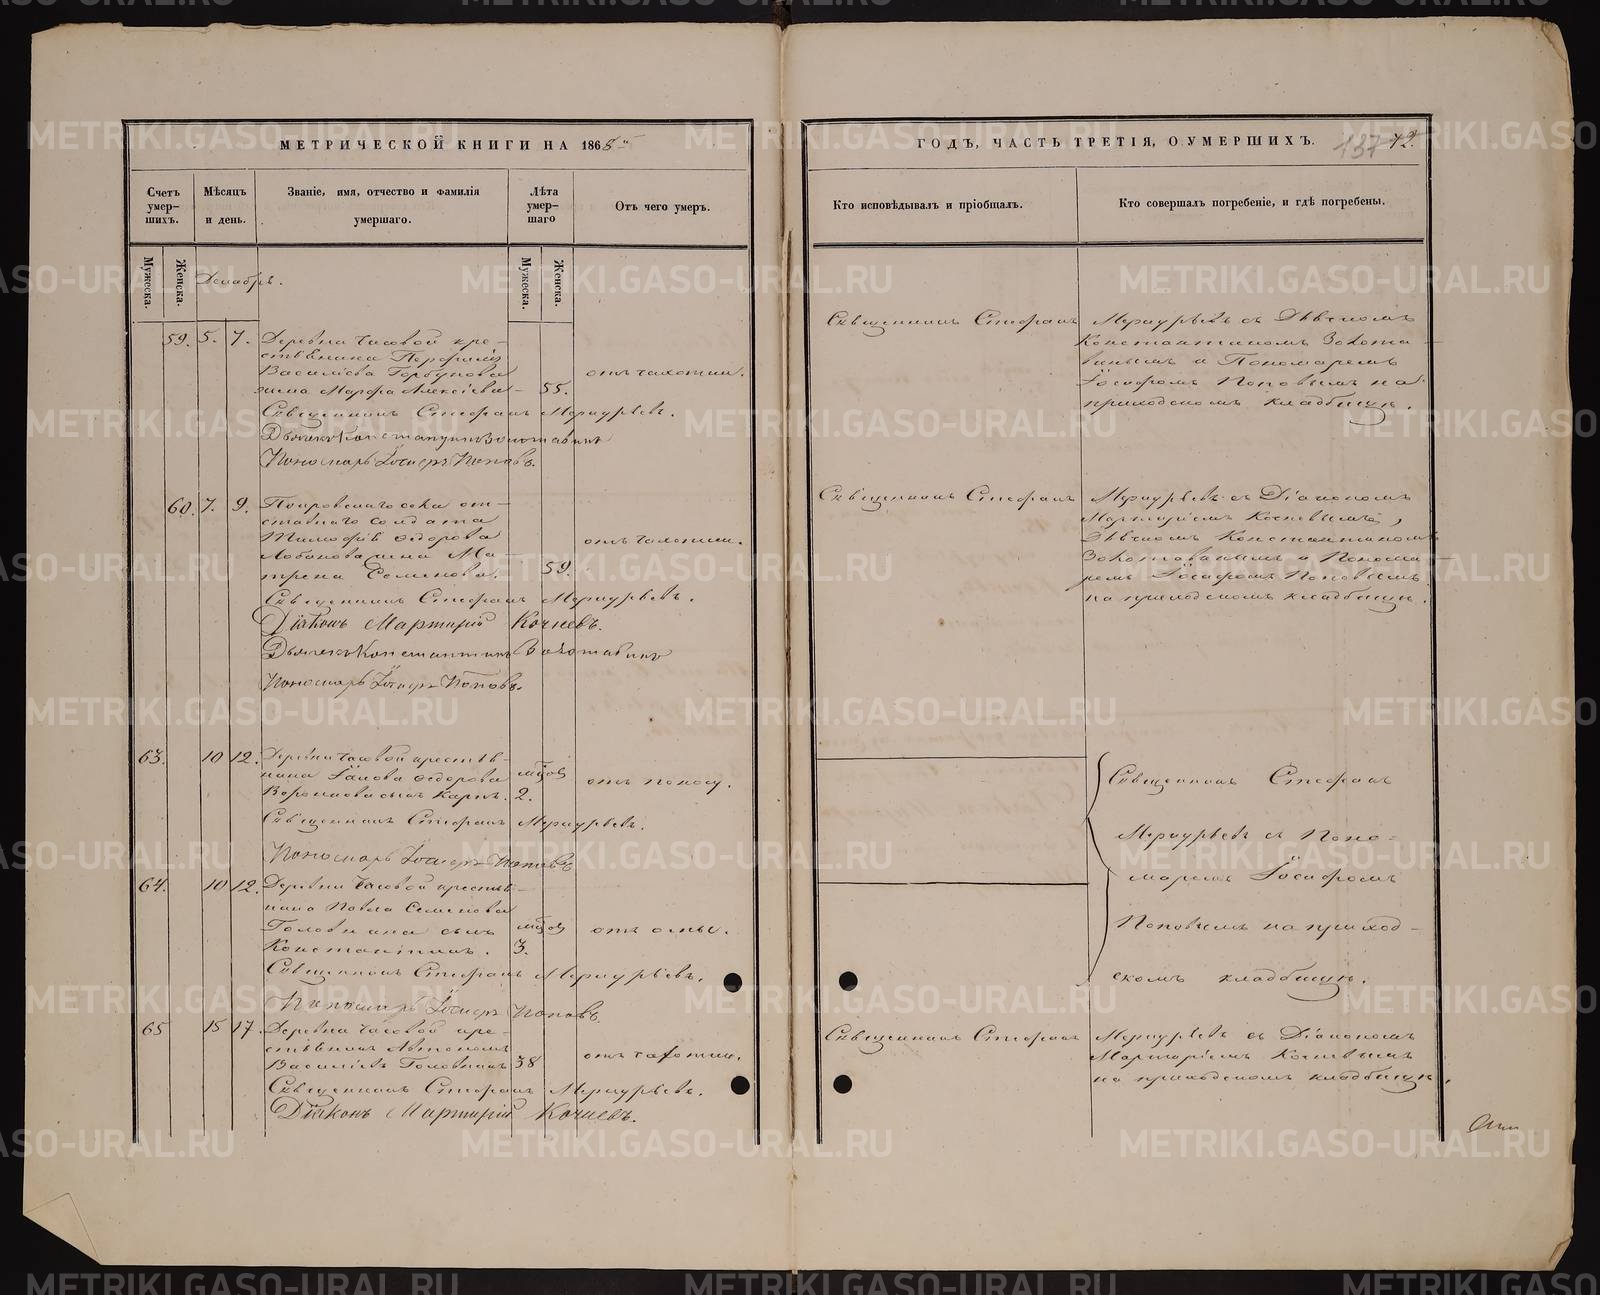 МЕТРИЧЕСКОЙ КНИГИ НА 1865
ГОДЪ, ЧАСТЬ ТРЕТІЯ, О УМЕРШИХЪ.
137 42.
Счетъ умер-шихъ.
Мѣсяцъ и день.
Званіе, имя, отчество и фамилія умершаго.
Лѣта умер-шаго
Отъ чего умеръ.
Кто исповѣдывалъ и пріобщалъ.
Кто совершалъ погребеніе, и гдѣ погребены.
Мужеска.
Женска.
Декабрь.
Мужеска.
Женска.
59. 5. 7. Деревни Часовой кре-
стьянина Перфилія
Василіева Горбунова
жена Марфа Алексіева 55. отъ чахотки.
Священникъ Стефанъ Меркурьевъ.
Дьячекъ Константинъ Золотавинъ
Пономарь Іосифъ Поповъ.
Священникъ Стефанъ Меркурьевъ съ Дьячкомъ
Константиномъ Золота-
винымъ и Пономаремъ
Іосифомъ Поповымъ на
приходскомъ кладбищѣ.
60. 7. 9. Покровскаго села от-
ставнаго солдата
Тимофея Ѳедорова
Лобанова жена Ма-
трена Семенова. 59. отъ чахотки.
Священникъ Стефанъ Меркурьевъ.
Діаконъ Мартирій Кочневъ.
Дьячекъ Константинъ Золотавинъ
Пономарь Іосифъ Поповъ.
Священникъ Стефанъ Меркурьевъ съ Діакономъ
Мартиріемъ Кочневымъ,
Дьячкомъ Константиномъ
Золотавинымъ и Понома-
ремъ Іосифомъ Поповымъ
на приходскомъ кладбищѣ.
63. 10 12. Деревни Часовой крестья-
нина Іакова Ѳедорова
сынъ Карпъ. 2. отъ поносу.
Священникъ Стефанъ Меркурьевъ.
Пономарь Іосифъ Поповъ
64. 10 12. Деревни Часовой крестья-
нина Павла Семенова
Головина сынъ
Константинъ. 3. отъ оспы.
Священникъ Стефанъ Меркурьевъ.
Пономарь Іосифъ Поповъ.
Священникъ Стефанъ
Меркурьевъ съ Поно-
маремъ Іосифомъ
Поповымъ на приход-
скомъ кладбищѣ.
65 15 17. Деревни Часовой кре-
стьянинъ Автономъ
Василіевъ Головинъ 38 отъ чахотки.
Священникъ Стефанъ Меркурьевъ.
Діаконъ Мартирій Кочневъ.
Священникъ Стефанъ Меркурьевъ съ Діакономъ
Мартиріемъ Кочневымъ
на приходскомъ кладбищѣ.
METRIKI.GASO-URAL.RU